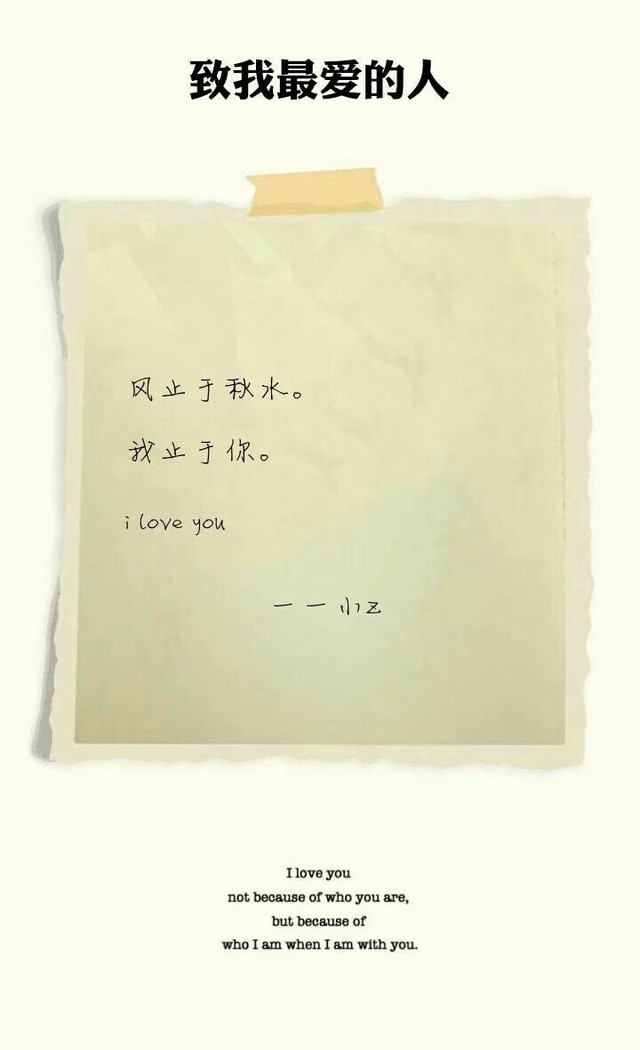 致我最爱的人
风止于秋水。
我止于你。
i love you
一一小z
I love you
not because of who you are,
but because of
who I am when I am with you.